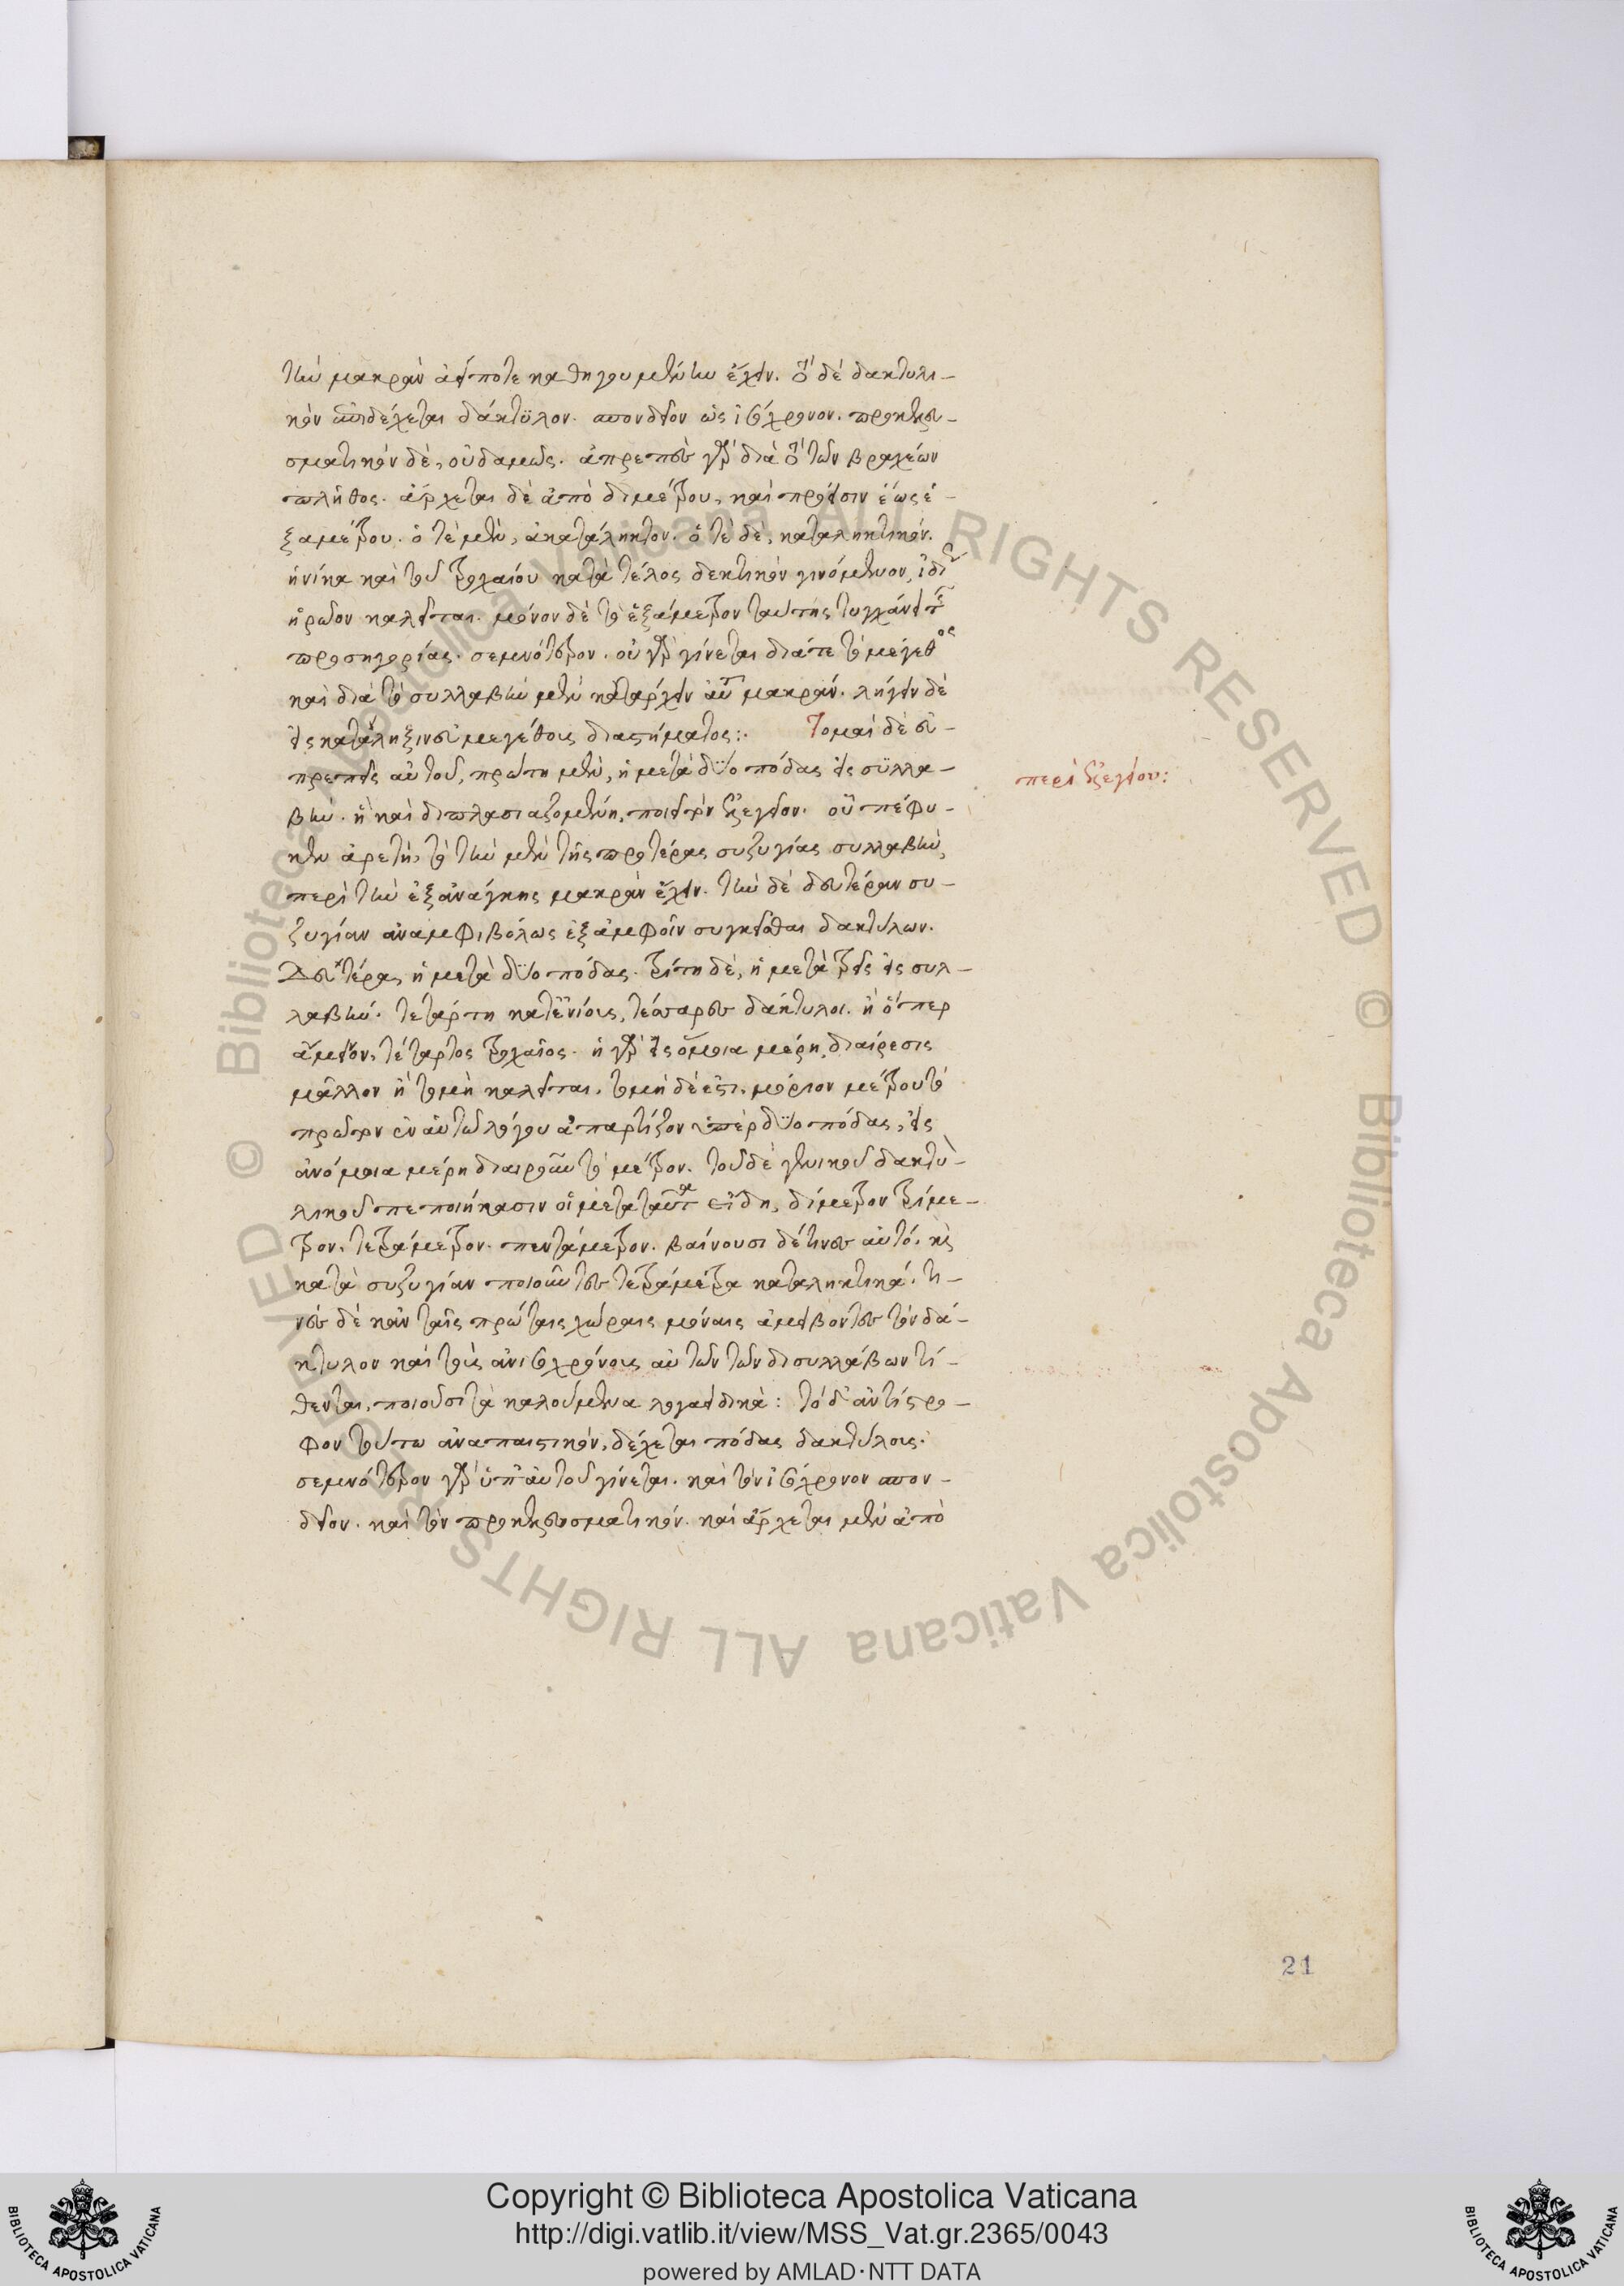 τὴν μακρὰν ἀείποτε καθηγουμένην ἔχειν. τὸ δὲ δακτυλι-
κὸν ἐπιδέχεται δάκτϋλον. σπονδεῖον ὡς ἰσόχρονον. προκελευ-
σματικὸν δὲ, οὐδαμῶς. ἀπρεπὲς γὰρ διὰ τὸ τῶν βραχέων
πλῆθος. ἄρχεται δὲ ἀπὸ διμέτρου, καὶ πρόεισιν ἕως ἑ-
ξαμέτρου. ὁτὲ μὲν, ἀκατάληκτον. ὁτὲ δὲ, καταληκτικόν.
ἡνίκα καὶ τοῦ τροχαίου κατὰ τέλος δεκτικὸν γινόμενον,
ἡρῶον καλεῖται. μόνον δὲ τὸ ἑξάμετρον ταύτης τυγχάνει τῆς
προσηγορίας. σεμνότερον. οὐ γὰρ γίνεται διά τε τὸ μέγεθος
καὶ διὰ τὸ συλλαβὴν μὲν κατάρχειν αὐτοῦ μακράν. λήγειν δὲ
εἰς κατάληξιν εὐμεγέθους διαστήματος:. Τομαὶ δὲ εὐ-
πρεπεῖς αὐτοῦ, πρώτη μὲν, ἡ μετὰ δύο πόδας εἰς συλλα-
περὶ ἐλεγείου:
βήν. ἣ καὶ διπλασιαζομένη, ποιεῖ τὸν ἐλεγεῖον. οὗ πέφυ-
κεν ἀρετὴ, τὸ τὴν μὲν τῆς προτέρας συζυγίας συλλαβὴν,
περιττὴν ἐξανάγκης μακρὰν ἔχειν. τὴν δὲ δευτέραν συ-
ζυγίαν ἀναμφιβόλως ἐξ ἀμφοῖν συγκεῖσθαι δακτύλων.
Δευτέρα, ἡ μετὰ δύο πόδας. τρίτη δὲ, ἡ μετὰ τρεῖς εἰς συλ-
λαβήν. τετάρτη κατ' ἐνίους, τέσσαρες δάκτυλοι. ἢ ὅπερ
ἄμεινον, τέταρτος τροχαῖος. ἡ γὰρ εἰς ὅμοια μέρη διαίρεσις
μᾶλλον ἢ τομὴ καλεῖται. τομὴ δέ ἐστι, μόριον μέτρου τὸ
πρῶτον ἐν αὐτῷ λόγου ἀπαρτίζον ὑπὲρ δύο πόδας, εἰς
ἀνόμοια μέρη διαιροῦν τὸ μέτρον. τοῦ δὲ γενικοῦ δακτυ-
λικοῦ πεποιήκασιν οἱ μετὰ ταῦτα εἴδη, δίμετρον τρίμε-
τρον. τετράμετρον. πεντάμετρον. βαίνουσι δέ τινες αὐτὸ, καὶ
κατὰ συζυγίαν ποιοῦντες τετράμετρα καταληκτικά. τι-
νὲς δὲ κἀν ταῖς πρώταις χώραις μόναις ἀμείβοντες τὸν δά-
κτυλον καὶ τοὺς ἀνισοχρόνους αὐτῶν τῶν δισυλλάβων τί-
θενται, ποιοῦσι τὰ καλούμενα λογαοιδικά: τὸ δ' ἀντίστρο-
φον τούτω ἀναπαιστικὸν, δέχεται πόδας δακτύλους.
σεμνότερον γὰρ ὑπ' αὐτοῦ γίνεται. καὶ τὸν ἰσόχρονον σπον-
δεῖον. καὶ τὸν προκελευσματικόν. καὶ ἄρχεται μὲν ἀπὸ
21
Copyright © Biblioteca Apostolica Vaticana
http://digi.vatlib.it/view/MSS_Vat.gr.2365/0043
powered by AMLAD·NTT DATA